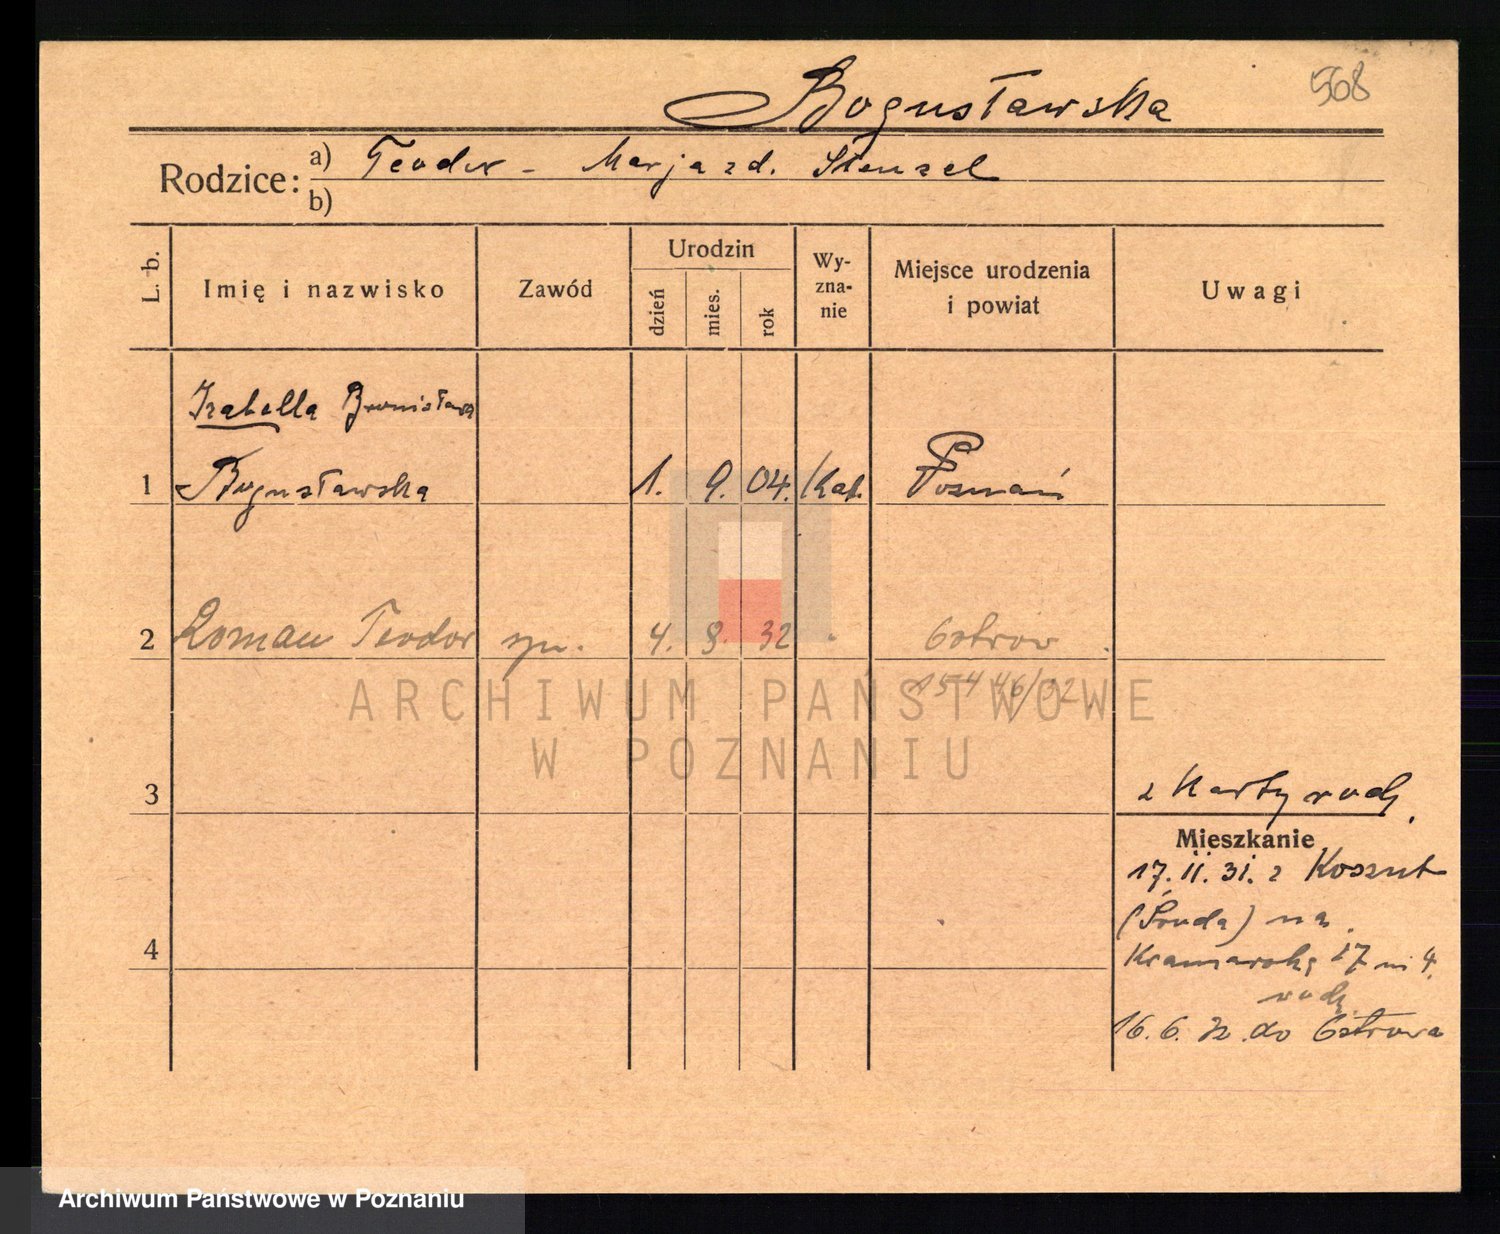 568
Bogusławska
Rodzice: a) Teodor - Marja zd. Stenzel
b)
L. b.
Imię i nazwisko
Zawód
Urodzin
dzień
mies.
rok
Wy-
zna-
nie
Miejsce urodzenia
i powiat
Uwagi
Izabella Bronisława
1 Bogusławska 1. 9. 04. Kat. Poznań
2 Roman Teodor syn. 4. 8. 32 Ostrów
ARCHIWUM PAŃSTWOWE
W POZNANIU
3
z Karty rodz.
Mieszkanie
17. II. 31. z Koszut
(Środa) na
4
Kramarską 17 m 4.
rodz.
16. 6. 32 do Ostrowa
Archiwum Państwowe w Poznaniu